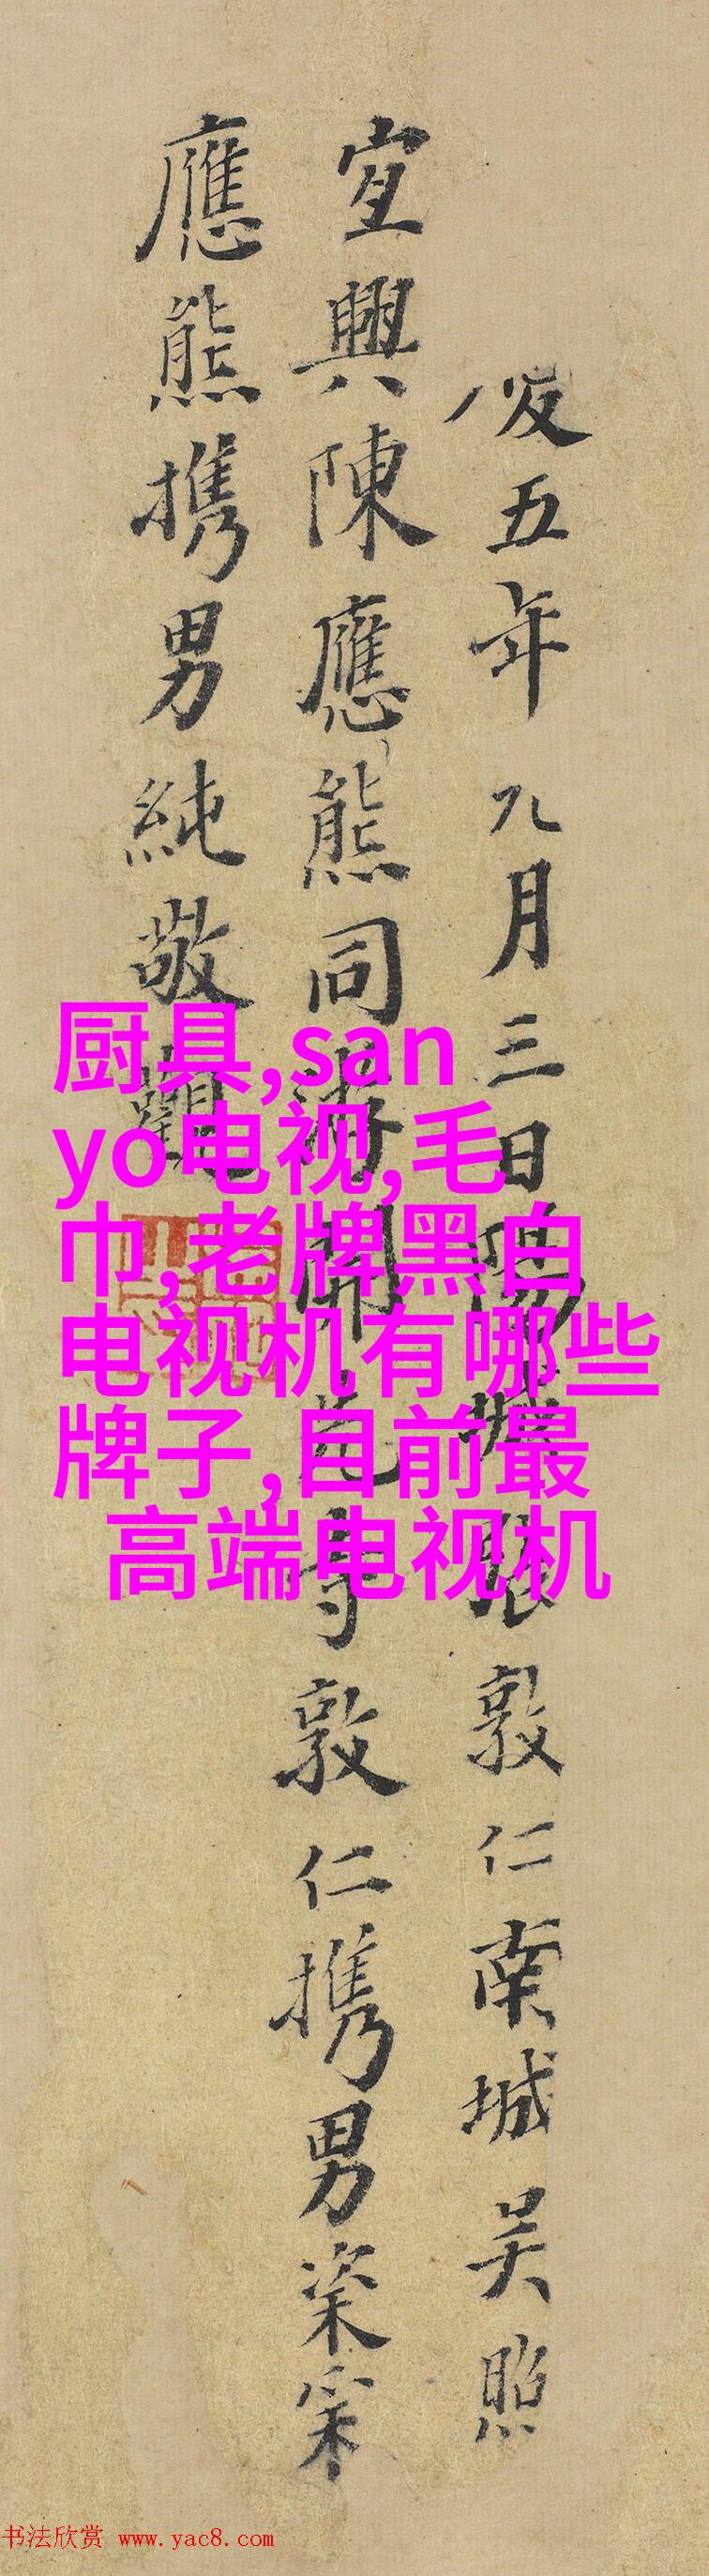 五年九月三日陽城張敦仁南城吴照
宜興陳應熊同游開元寺敦仁携男粢寀
應熊携男純敬觀
厨具,san
yo电视,毛
巾,老牌黑白
电视机有哪些
牌子,目前最
高端电视机
书法欣赏 www.yac8.com